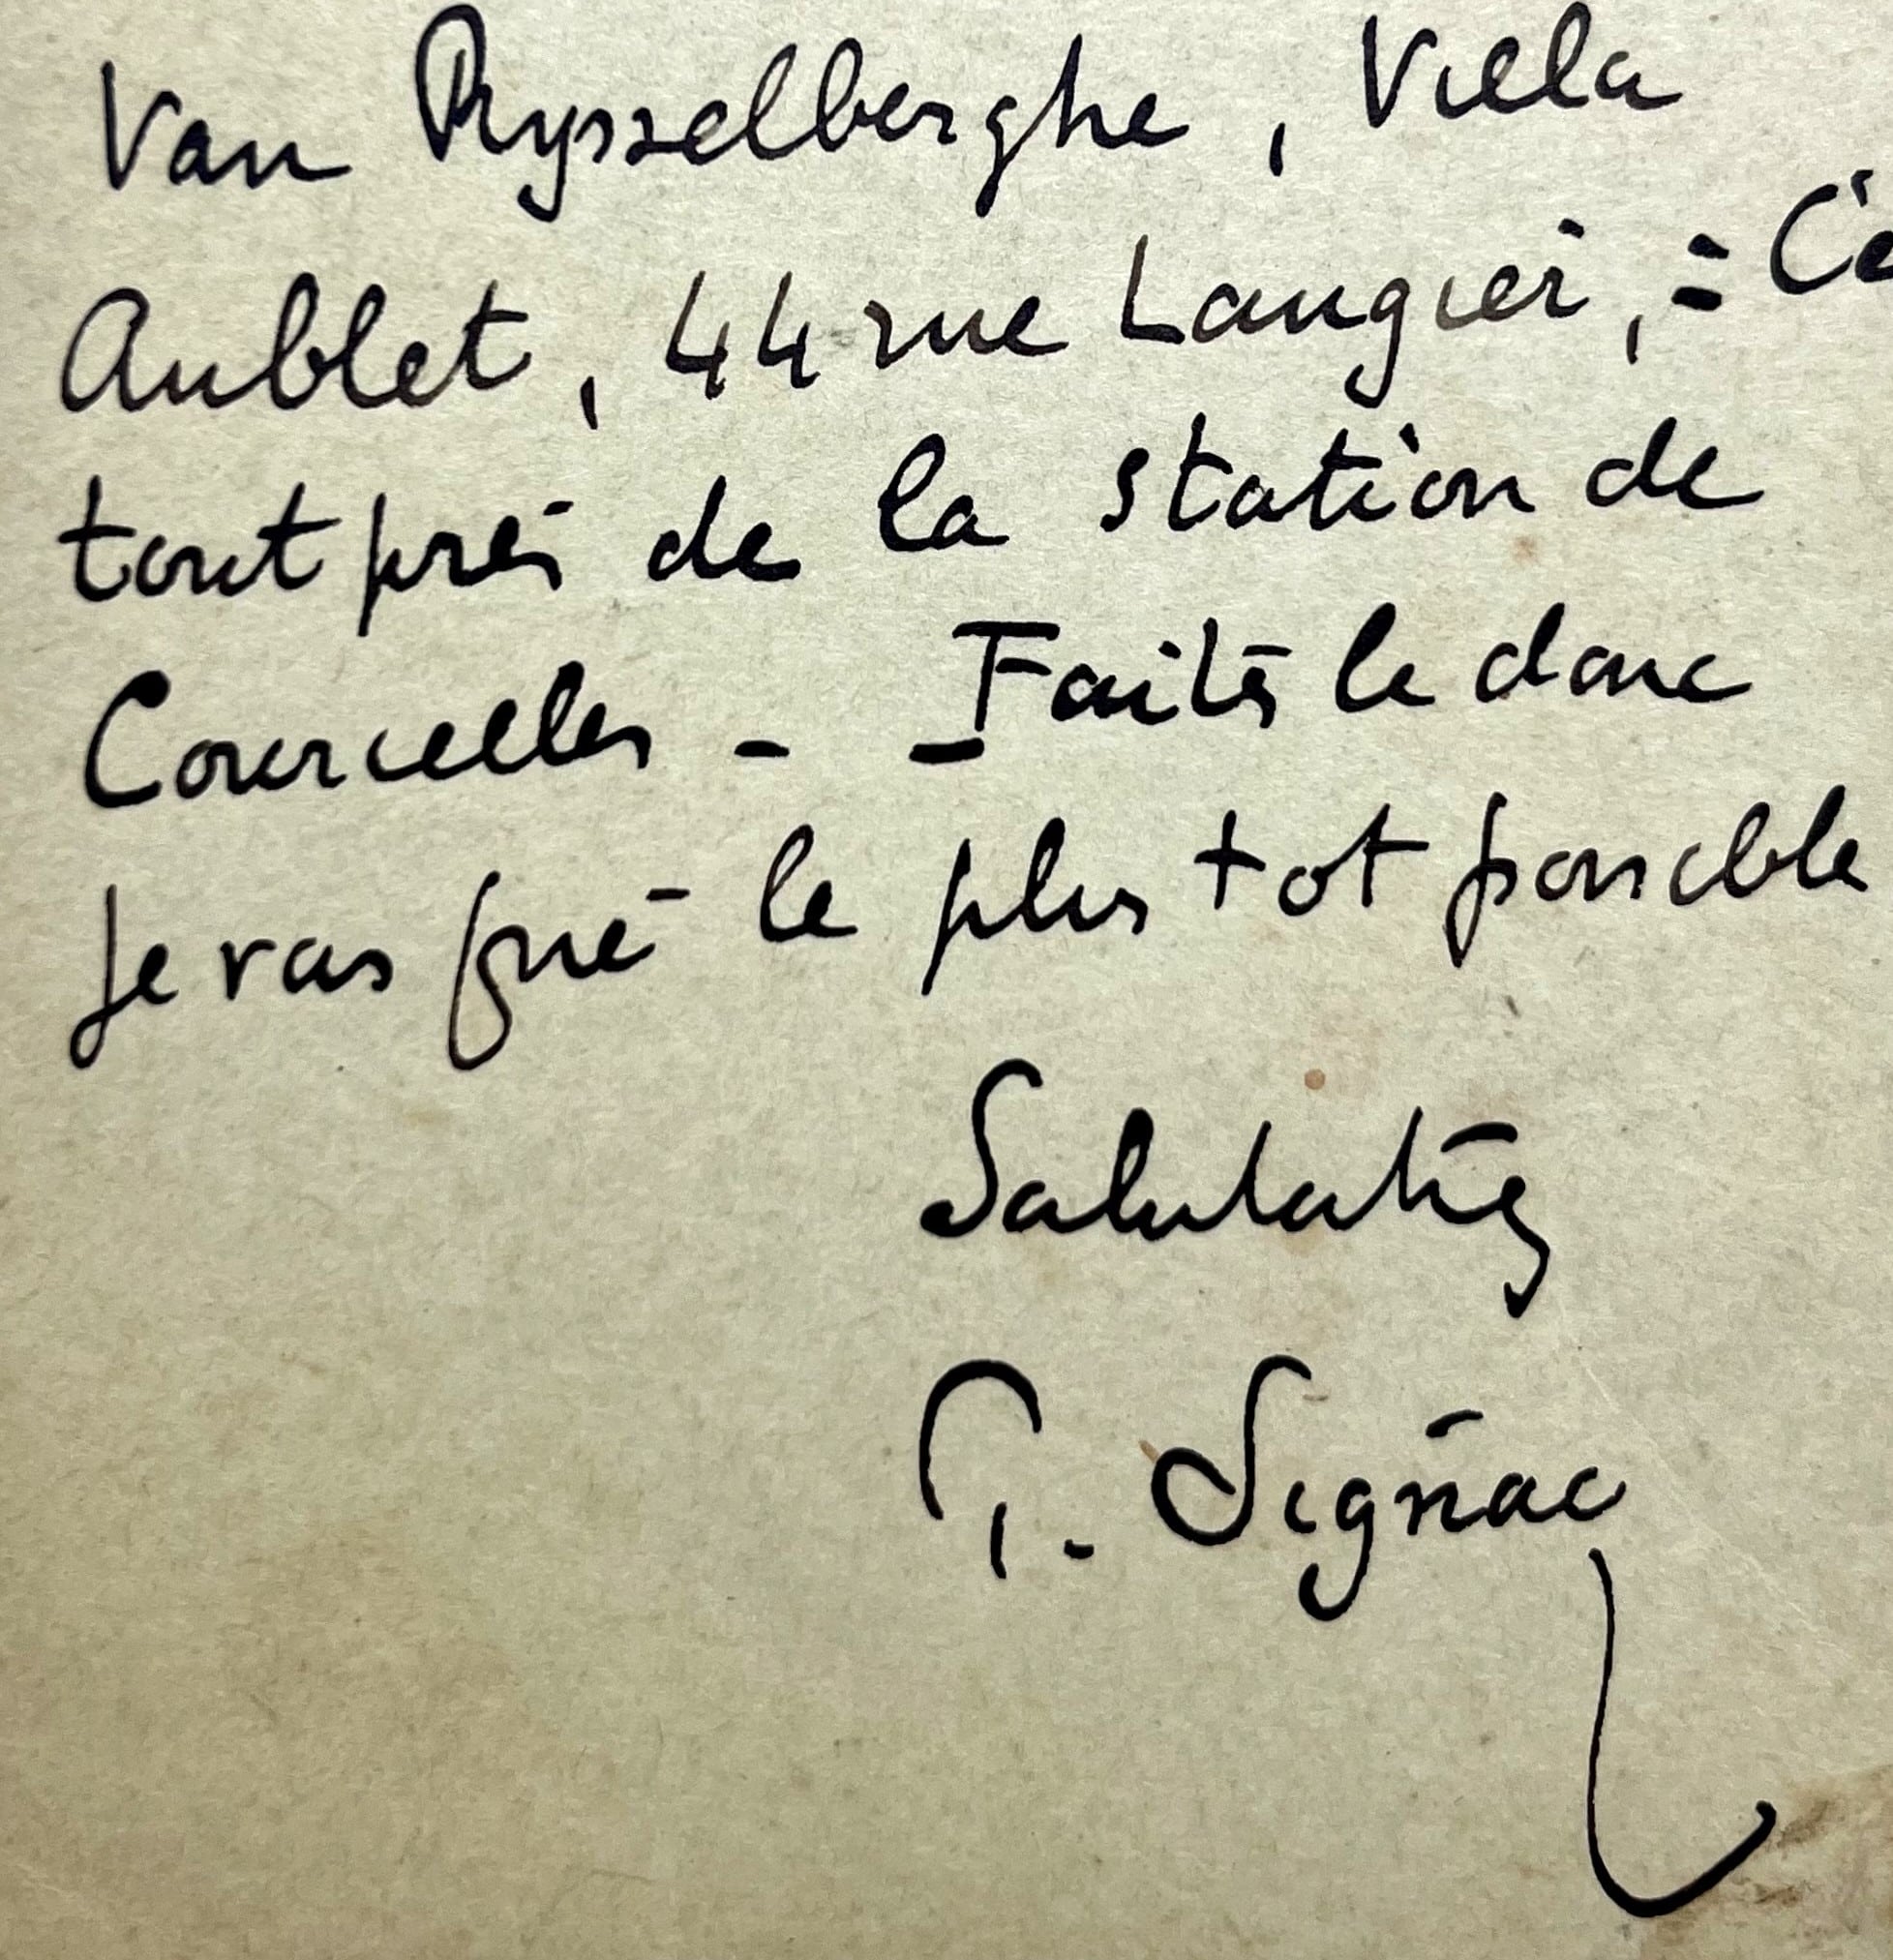 Van Rysselberghe, Villa
Aublet, 44 rue Laugier, = C'e
tout près de la station de
Courcelles - - Faites le donc
je vous prie le plus tot possible
Salutations
P. Signac